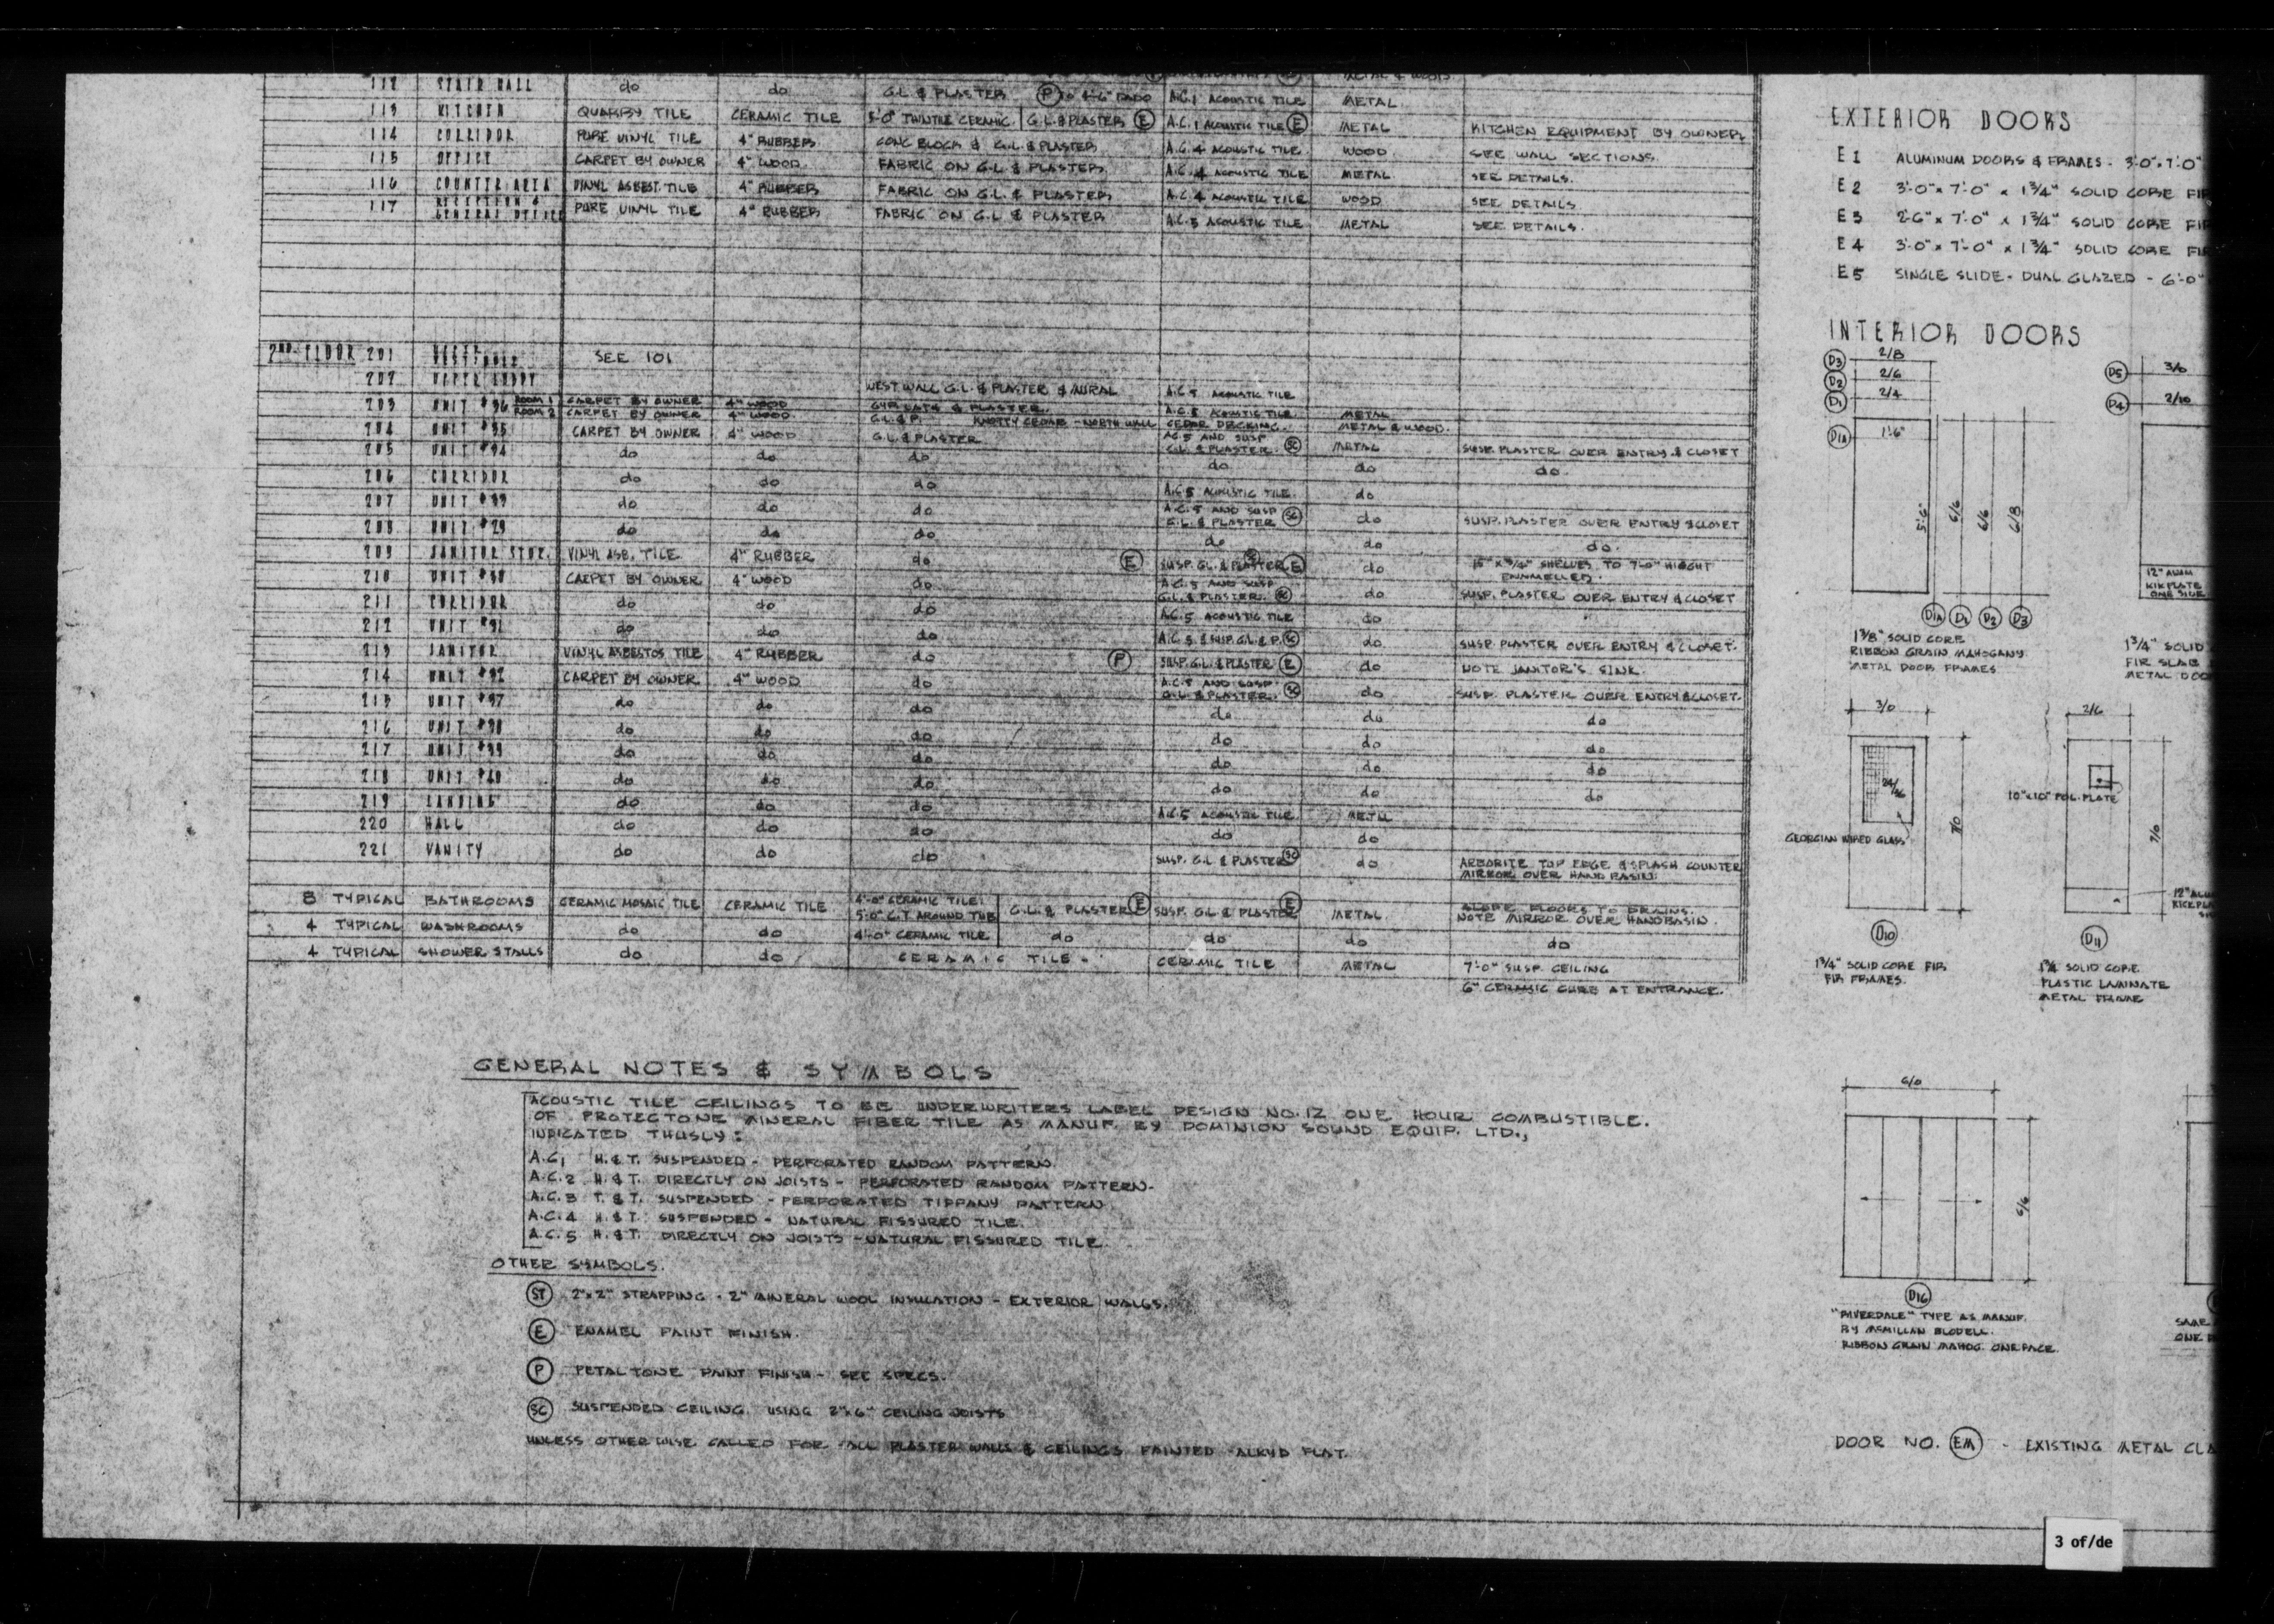 112 STAIR HALL do do G.L. & PLASTER (P) TO 4'-6" DADO A.C.1 ACOUSTIC TILE METAL
113 KITCHEN QUARRY TILE CERAMIC TILE 5'-0" TWINTILE CERAMIC. G.L. & PLASTER (E) A.C.1 ACOUSTIC TILE (E) METAL KITCHEN EQUIPMENT BY OWNER
114 CORRIDOR PURE VINYL TILE 4" RUBBER CONC BLOCK & G.L. & PLASTER A.C.4 ACOUSTIC TILE WOOD SEE WALL SECTIONS.
115 OFFICE CARPET BY OWNER 4" WOOD. FABRIC ON G.L. & PLASTER A.C.4 ACOUSTIC TILE METAL SEE DETAILS.
116 COUNTER AREA VINYL ASBEST. TILE 4" RUBBER FABRIC ON G.L. & PLASTER A.C.4 ACOUSTIC TILE WOOD SEE DETAILS
117 RECEPTION & GENERAL OFFICE PURE VINYL TILE 4" RUBBER FABRIC ON G.L. & PLASTER A.C.5 ACOUSTIC TILE METAL SEE DETAILS.
2ND. FLOOR 201 UPPER VESTIBULE SEE 101
202 UPPER LOBBY WEST WALL G.L. & PLASTER & MURAL A.C.5 ACOUSTIC TILE
203 UNIT #36 ROOM 1 CARPET BY OWNER 4" WOOD GYP. LATH & PLASTER. A.C.5 ACOUSTIC TILE METAL
ROOM 2 CARPET BY OWNER 4" WOOD. G.L. & P. KNOTTY CEDAR - NORTH WALL CEDAR DECKING. METAL & WOOD.
204 UNIT #35 CARPET BY OWNER 4" WOOD G.L. & PLASTER A.C.5 AND SUSP G.L. & PLASTER. (SC) METAL SUSP. PLASTER OVER ENTRY & CLOSET
205 UNIT #34 do do do do do do.
206 CORRIDOR do do do A.C.5 ACOUSTIC TILE. do
207 UNIT #33 do do do A.C.5 AND SUSP G.L. & PLASTER (SC) do SUSP. PLASTER OVER ENTRY & CLOSET
208 UNIT #29 do do do do do do.
209 JANITOR STOR. VINYL ASB. TILE 4" RUBBER do (E) SUSP. G.L. & PLASTER (E) do 15" x 3/4" SHELVES TO 7'-0" HIEGHT ENAMELLED.
210 UNIT #30 CARPET BY OWNER 4" WOOD do A.C.5 AND SUSP G.L. & PLASTER. (SC) do SUSP. PLASTER OVER ENTRY & CLOSET
211 CORRIDOR do do do A.C.5 ACOUSTIC TILE do
212 UNIT #31 do do do A.C.5 & SUSP. G.L. & P. (SC) do SUSP. PLASTER OVER ENTRY & CLOSET.
213 JANITOR VINYL ASBESTOS TILE 4" RUBBER do (P) SUSP. G.L. & PLASTER (E) do NOTE JANITOR'S SINK.
214 UNIT #32 CARPET BY OWNER 4" WOOD do A.C.5 AND SUSP. G.L. & PLASTER. (SC) do SUSP. PLASTER OVER ENTRY & CLOSET.
215 UNIT #37 do do do do do do
216 UNIT #38 do do do do do do
217 UNIT #39 do do do do do do
218 UNIT #40 do do do do do do
219 LANDING do do do A.C.5 ACOUSTIC TILE METAL
220 HALL do do do do do
221 VANITY do do do SUSP. G.L. & PLASTER (SC) do ARBORITE TOP EDGE & SPLASH COUNTER
MIRROR OVER HAND BASIN.
8 TYPICAL BATHROOMS CERAMIC MOSAIC TILE CERAMIC TILE 4'-0" CERAMIC TILE. 5'-0" C.T. AROUND TUB G.L. & PLASTER (E) SUSP. G.L. & PLASTER (E) METAL SLOPE FLOORS TO DRAINS.
NOTE MIRROR OVER HANDBASIN.
4 TYPICAL WASHROOMS do do 4'-0" CERAMIC TILE do do do do
4 TYPICAL SHOWER STALLS do do CERAMIC TILE - CERAMIC TILE METAL 7'-0" SUSP. CEILING
6" CERAMIC CURB AT ENTRANCE.
GENERAL NOTES & SYMBOLS
ACOUSTIC TILE CEILINGS TO BE UNDERWRITERS LABEL DESIGN NO.12 ONE HOUR COMBUSTIBLE.
OF PROTECTONE MINERAL FIBER TILE AS MANUF. BY DOMINION SOUND EQUIP. LTD.,
INDICATED THUSLY:
A.C.1 H.&T. SUSPENDED - PERFORATED RANDOM PATTERN.
A.C.2 H.&T. DIRECTLY ON JOISTS - PERFORATED RANDOM PATTERN.
A.C.3 T.&T. SUSPENDED - PERFORATED TIPPANY PATTERN.
A.C.4 H.&T. SUSPENDED - NATURAL FISSURED TILE.
A.C.5 H.&T. DIRECTLY ON JOISTS - NATURAL FISSURED TILE.
OTHER SYMBOLS.
(ST) 2"x2" STRAPPING - 2" MINERAL WOOL INSULATION - EXTERIOR WALLS.
(E) ENAMEL PAINT FINISH.
(P) PETALTONE PAINT FINISH - SEE SPECS.
(SC) SUSPENDED CEILING USING 2"x6" CEILING JOISTS
UNLESS OTHERWISE CALLED FOR ALL PLASTER WALLS & CEILINGS PAINTED ALKYD FLAT.
EXTERIOR DOORS
E1 ALUMINUM DOORS & FRAMES - 3'-0" x 7'-0"
E2 3'-0" x 7'-0" x 1 3/4" SOLID CORE FIR
E3 2'-6" x 7'-0" x 1 3/4" SOLID CORE FIR
E4 3'-0" x 7'-0" x 1 3/4" SOLID CORE FIR
E5 SINGLE SLIDE - DUAL GLAZED - 6'-0"
INTERIOR DOORS
D3 2/8
D2 2/6
D1 2/4
D1A 1'-6"
5'-6" 6/6 6/6 6/8
D1A D1 D2 D3
1 3/8" SOLID CORE
RIBBON GRAIN MAHOGANY.
METAL DOOR FRAMES
D5 3/0
D4 2/10
12" ALUM
KIKPLATE
ONE SIDE
1 3/4" SOLID
FIR SLAB
METAL DOOR
3/0
7/0
GEORGIAN WIRED GLASS
D10
1 3/4" SOLID CORE FIR
FIR FRAMES.
2/6
10"x10" POL. PLATE
7/0
12" ALUM
KICKPLA
D11
1 3/4 SOLID CORE
PLASTIC LAMINATE
METAL FRAME
6/0
6/6
D16
"RIVERDALE" TYPE AS MANUF.
BY McMILLAN BLODELL.
RIBBON GRAIN MAHOG. ONE FACE.
SAME
ONE
DOOR NO. (EM) - EXISTING METAL CLA
3 of/de